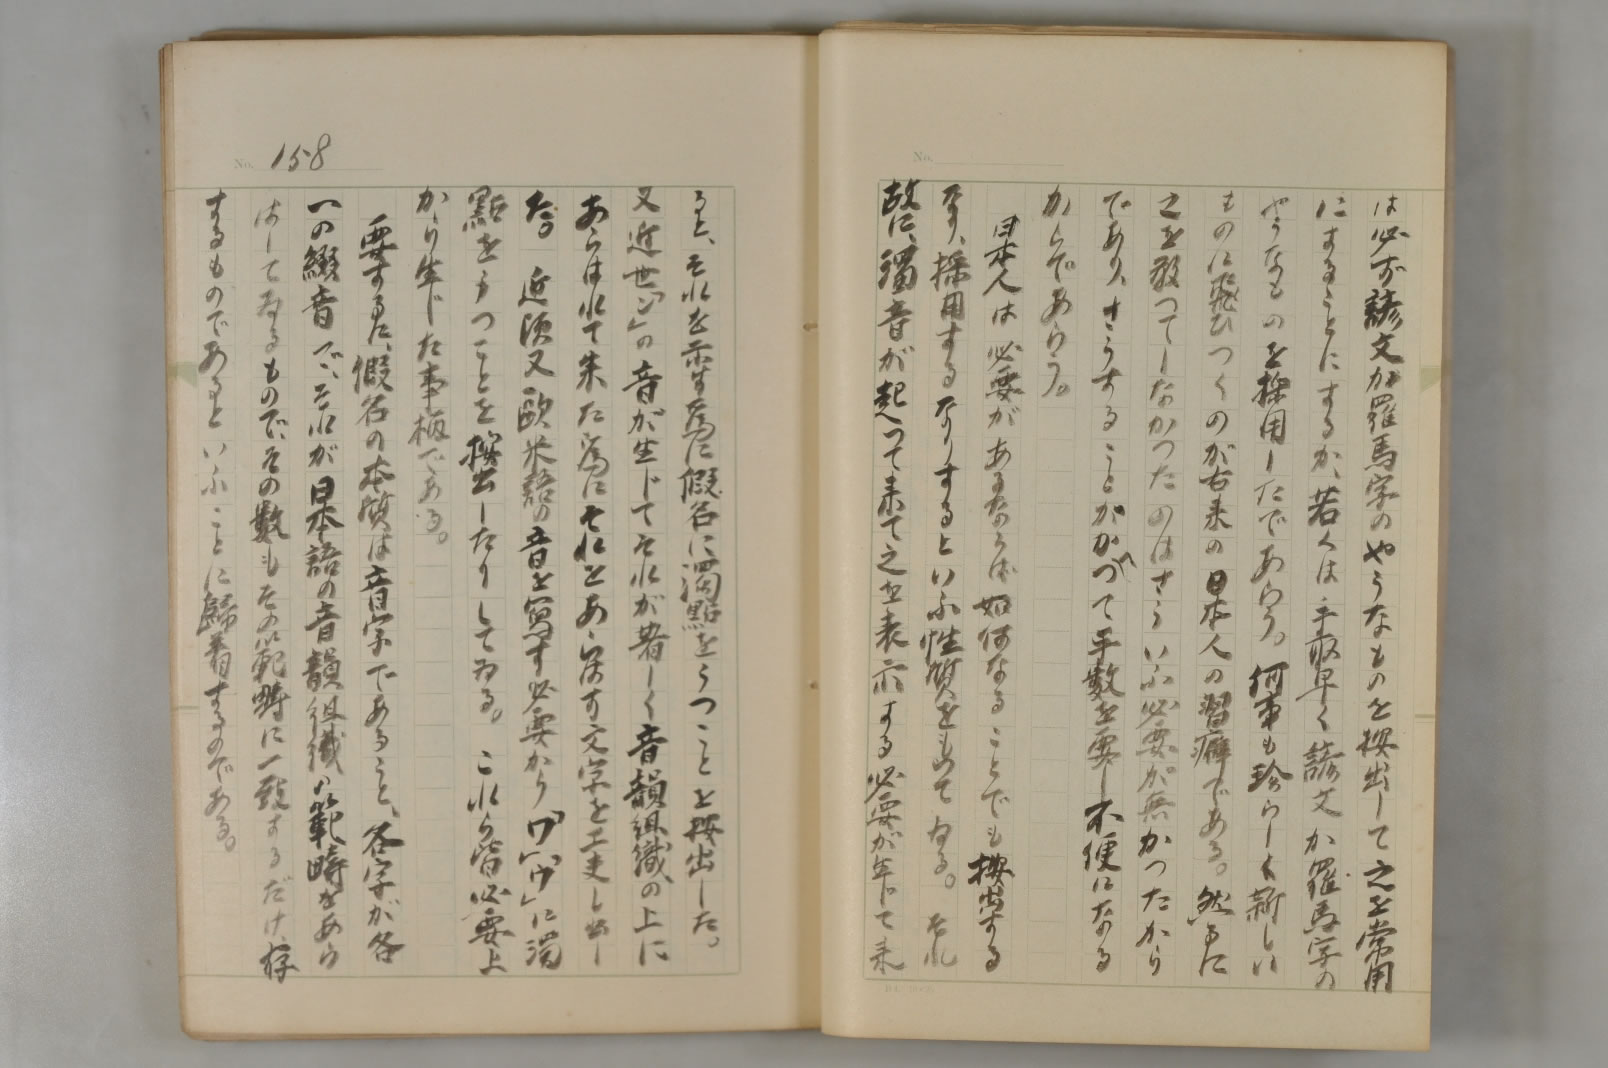 は必ず諺文か羅馬字のやうなものを按出して之を常用
にすることにするか、若くは手取早く諺文か羅馬字の
やうなものを採用したであらう。何事も珍らしく新しい
ものに飛びつくのが古来の日本人の習癖である。然るに
之を敢つてしなかつたのはさういふ必要が無かつたから
であり、さうすることがかへつて手数を要し不便になる
からであらう。
日本人は必要があるならば如何なることでも按出する
なり、採用するなりするといふ性質をもつてゐる。それ
故に、濁音が起つて来て之を表示する必要が生じて来
No.
158
No.
ると、それを示す為に假名に濁點をうつことを按出した。
又近世「ン」の音が生じてそれが著しく音韻組織の上に
あらはれて来た為にそれをあらはす文字を工夫し出し
た。近頃又歐米語の音を寫す必要から「ワ」「ウ」に濁
點をうつことを按出したりしてゐる。これら皆必要上
から生じた事柄である。
要するに、假名の本質は音字であること、各字が各
一の綴音で、それが日本語の音韻組織の範疇をあら
はしてゐるもので、その数もその範疇に一致するだけ、存
するものであるといふことに歸着するのである。